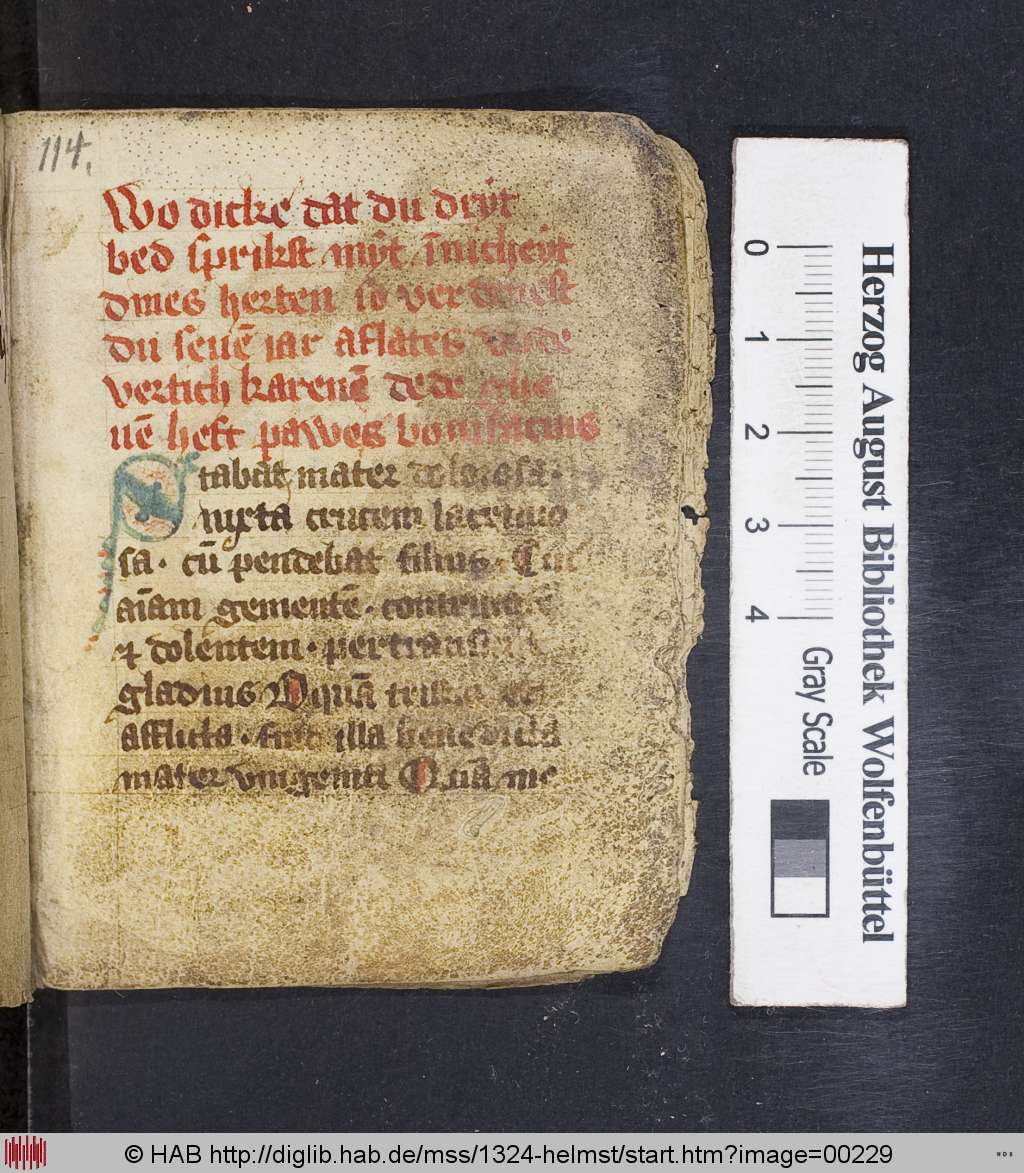 114.
Wo dicke dat du dyt
bed sprikst myt īnicheyt
dines herten so verdenest
du seuē iar aflates vnde
vertich karenē dede
uē heft pawes bonifacius
Stabat mater dolorosa.
iuxta crucem lacrimo
sa. cū pendebat filius. Cui
aīam gementē. contrista
et dolentem. pertransi
gladius O quā tristis et
afflicta. fuit illa benedicta
mater vnigeniti Quā me
0 1 2 3 4
Gray Scale
Herzog August Bibliothek Wolfenbüttel
© HAB http://diglib.hab.de/mss/1324-helmst/start.htm?image=00229